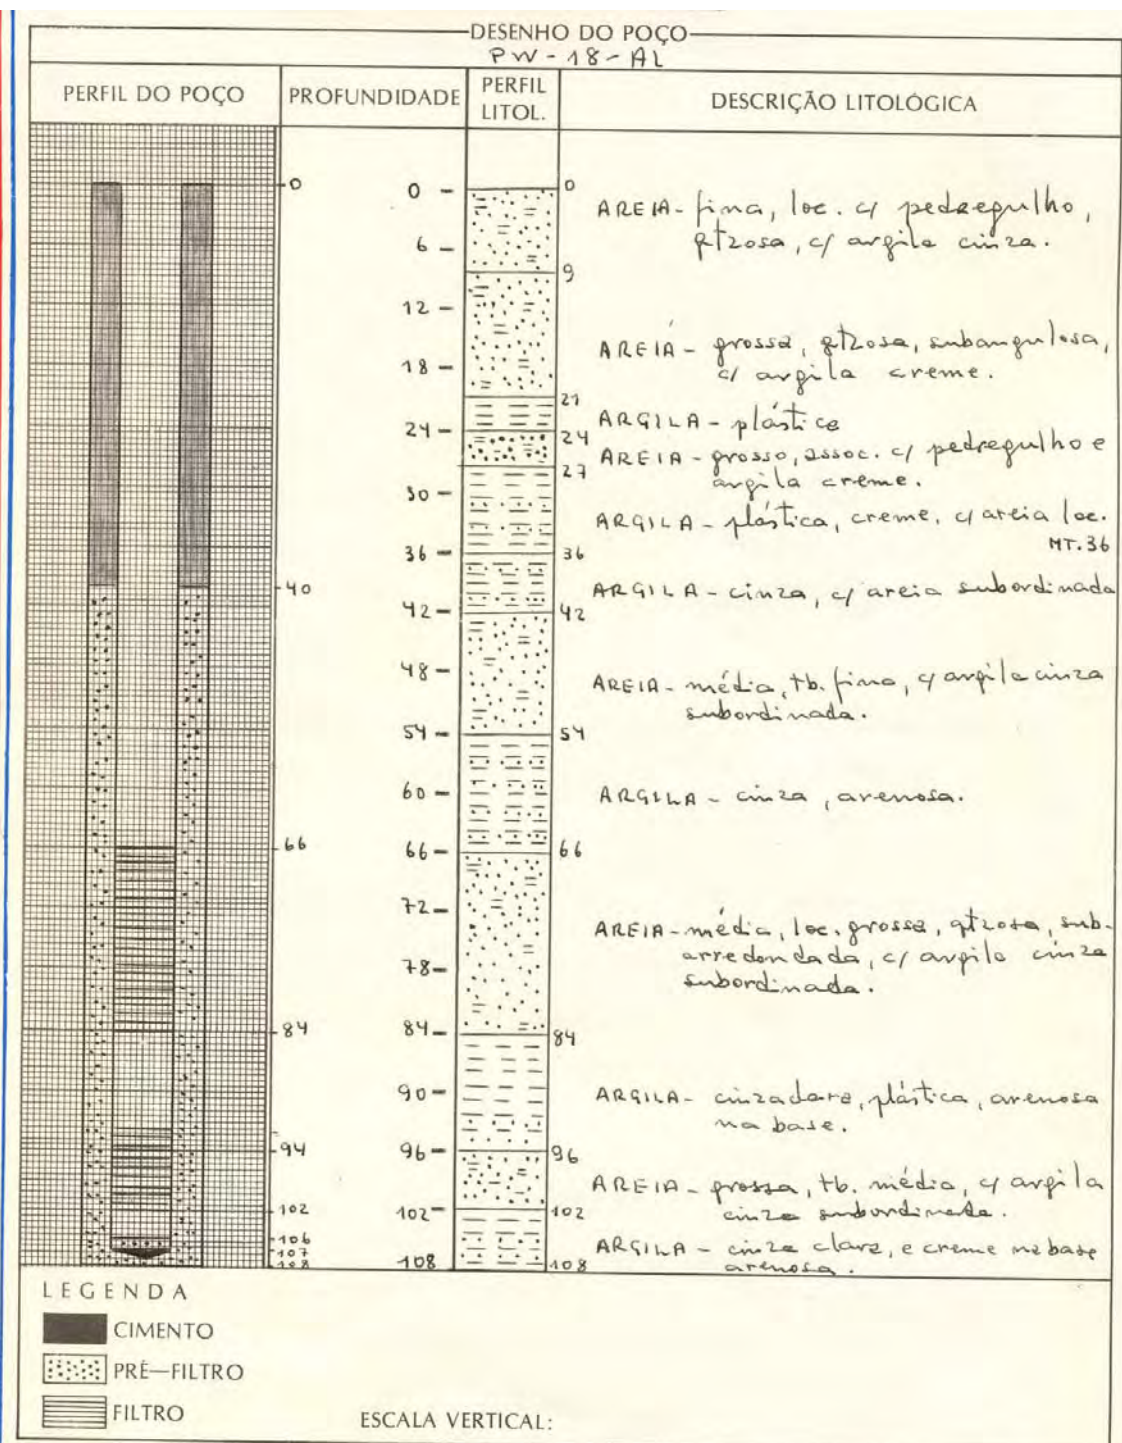 DESENHO DO POÇO
PW-18-AL
PERFIL DO POÇO
PROFUNDIDADE
PERFIL LITOL.
DESCRIÇÃO LITOLÓGICA
0
40
66
84
94
102
106
107
108
0
6
12
18
24
30
36
42
48
54
60
66
72
78
84
90
96
102
108
0
9
21
24
27
36
42
54
66
84
96
102
108
AREIA - fina, loc. c/ pedregulho,
qtzosa, c/ argila cinza.
AREIA - grossa, qtzosa, subangulosa,
c/ argila creme.
ARGILA - plástica
AREIA - grosso, assoc. c/ pedregulho e
argila creme.
ARGILA - plástica, creme, c/ areia loc.
MT. 36
ARGILA - cinza, c/ areia subordinada
AREIA - média, tb. fina, c/ argila cinza
subordinada.
ARGILA - cinza, arenosa.
AREIA - média, loc. grossa, qtzosa, sub-
arredondada, c/ argila cinza
subordinada.
ARGILA - cinza clara, plástica, arenosa
na base.
AREIA - grossa, tb. média, c/ argila
cinza subordinada.
ARGILA - cinza clara, e creme na base
arenosa.
LEGENDA
CIMENTO
PRÉ-FILTRO
FILTRO
ESCALA VERTICAL: